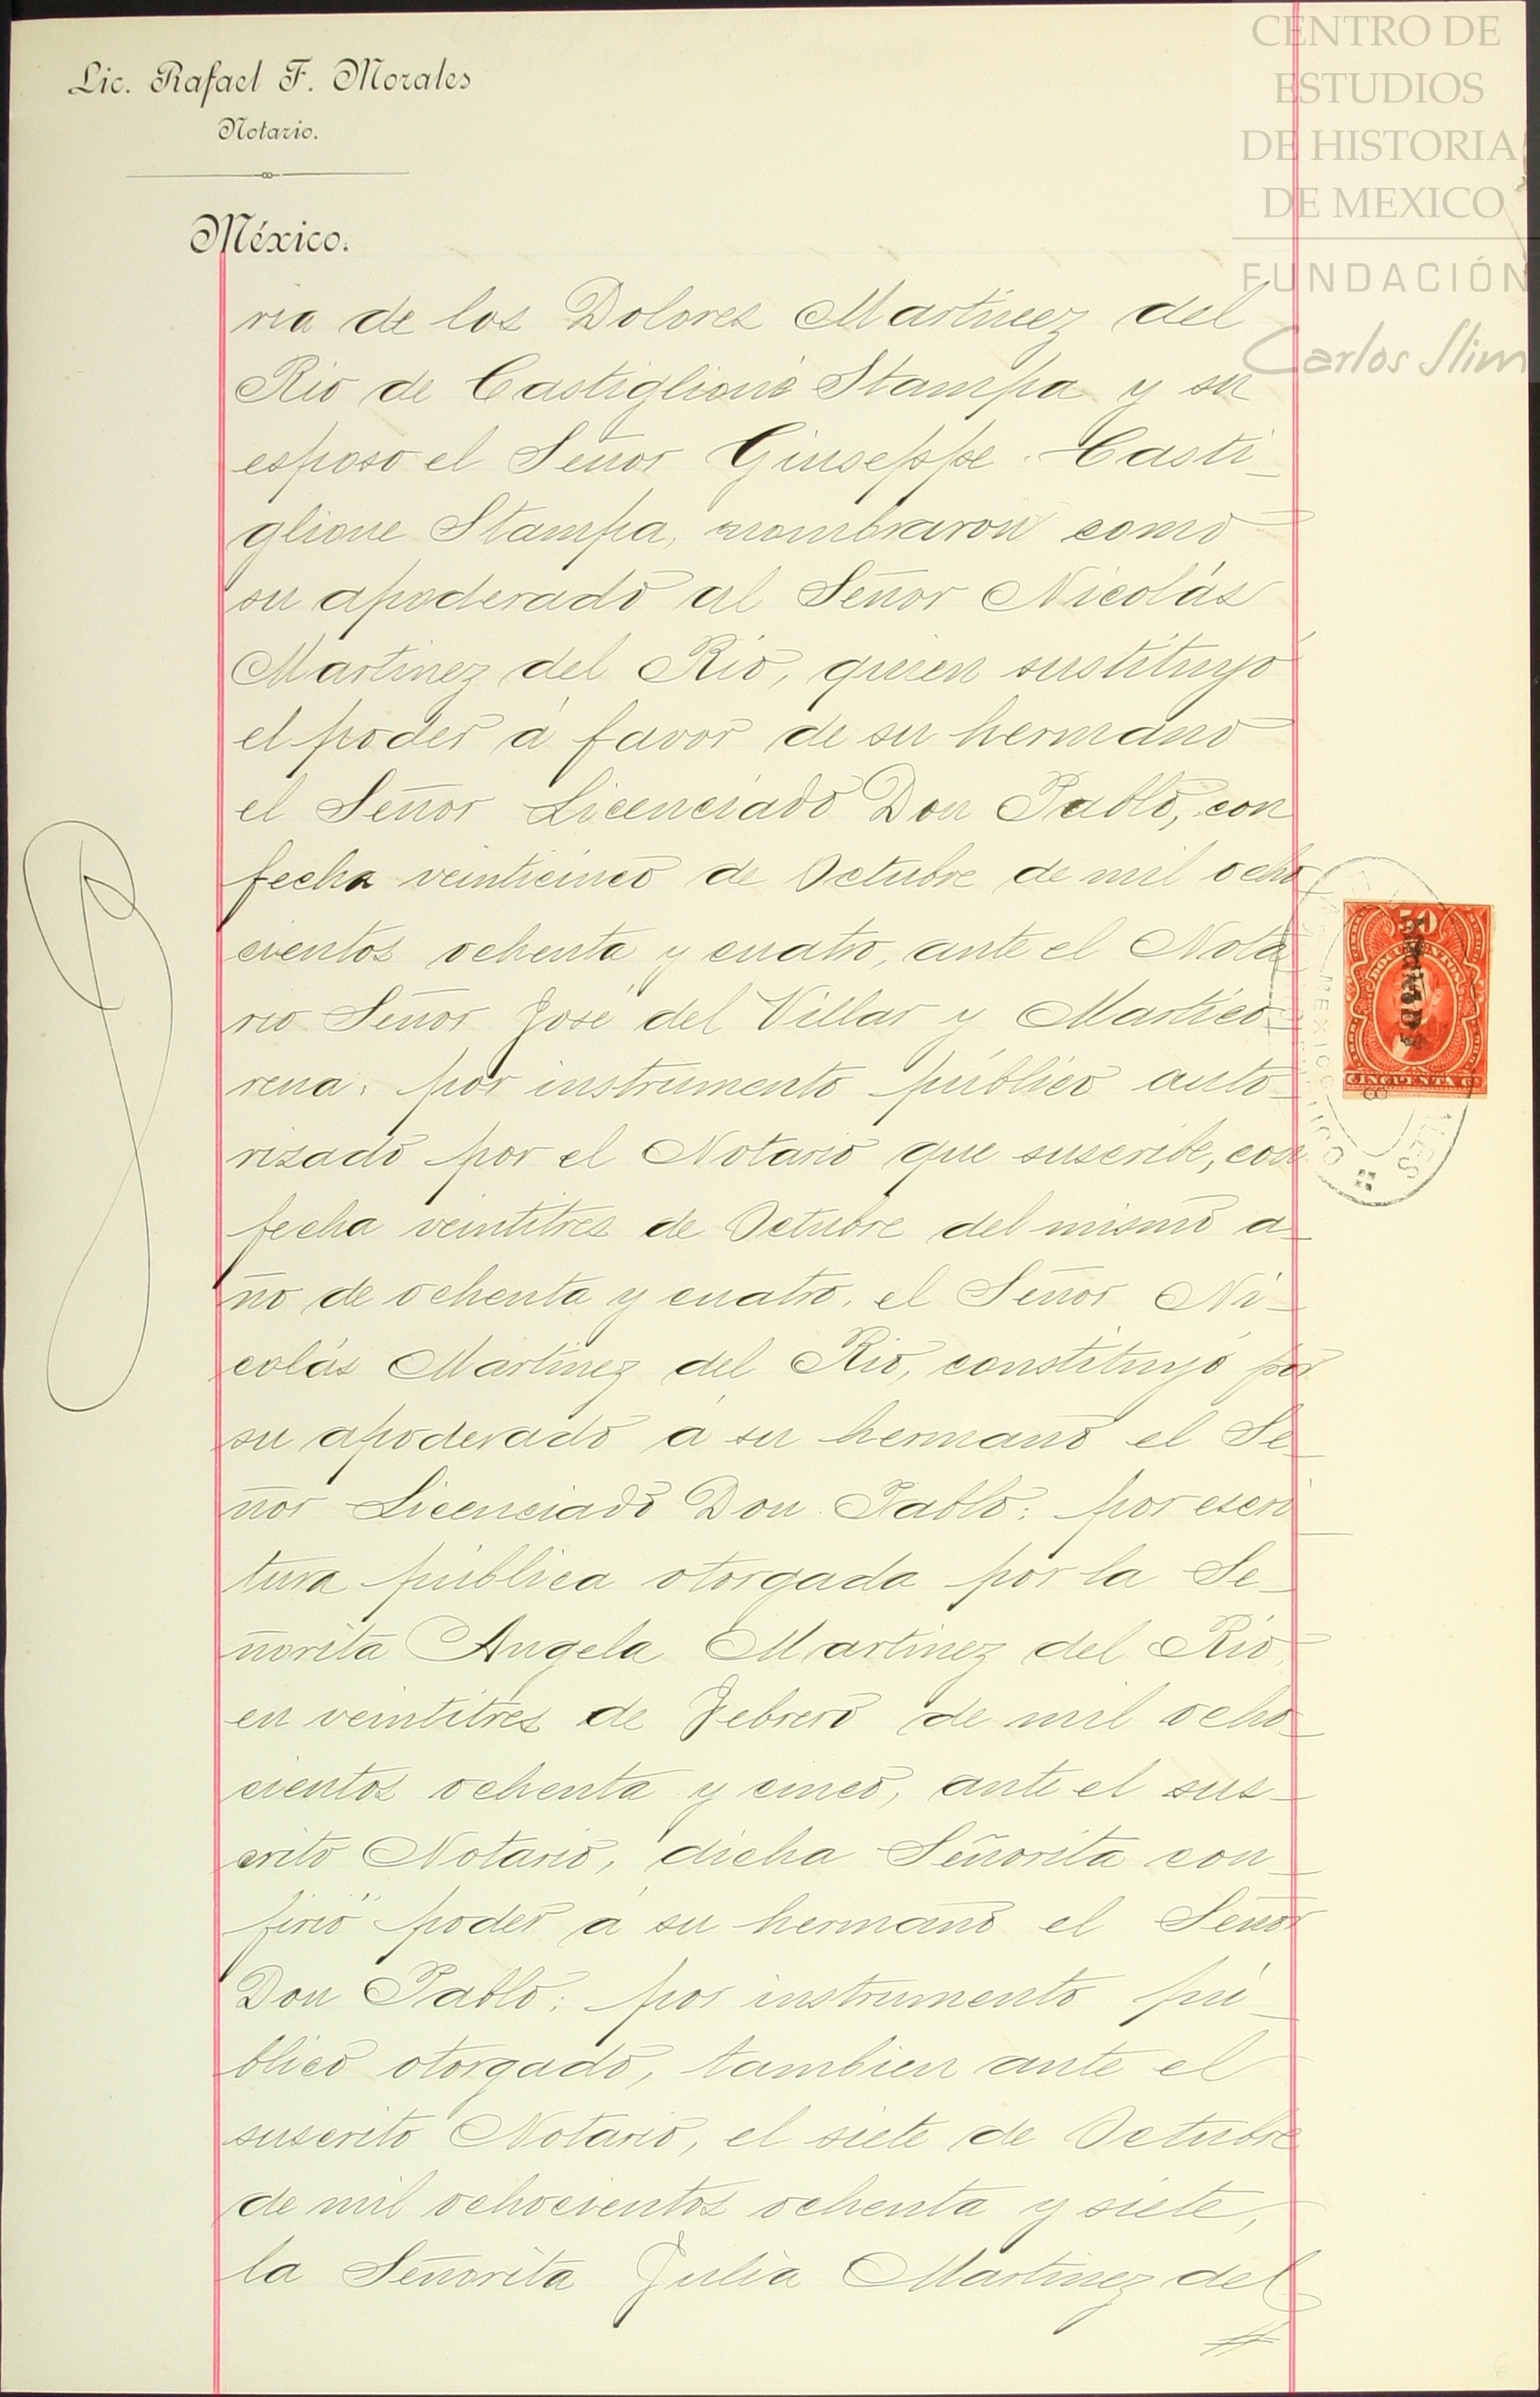 Lic. Rafael F. Morales
Notario.
México.
CENTRO DE
ESTUDIOS
DE HISTORIA
DE MEXICO
FUNDACIÓN
Carlos Slim
ria de los Dolores Martinez del
Rio de Castiglioni Stampa y su
esposo el Señor Giuseppe Casti-
glione Stampa, nombraron como
su apoderado al Señor Nicolás
Martinez del Rio, quien sustituyó
el poder á favor de su hermano
el Señor Licenciado Don Pablo, con
fecha veinticinco de Octubre de mil ocho
cientos ochenta y cuatro, ante el Nota
rio Señor José del Villar y Martico-
rena: por instrumento público auto-
rizado por el Notario que suscribe, con
fecha veintitres de Octubre del mismo a-
ño de ochenta y cuatro, el Señor Ni-
colás Martinez del Rio, constituyó por
su apoderado á su hermano el Se-
ñor Licenciado Don Pablo: por escri
tura pública otorgada por la Se-
ñorita Angela Martinez del Rio,
en veintitres de Febrero de mil ocho-
cientos ochenta y cinco, ante el sus-
crito Notario, dicha Señorita con-
firió poder á su hermano el Señor
Don Pablo: por instrumento pú-
blico otorgado, tambien ante el
suscrito Notario, el siete de Octubre
de mil ochocientos ochenta y siete,
la Señorita Julia Martinez del
50
DOCUMENTOS
CINCUENTA CS
MEXICO